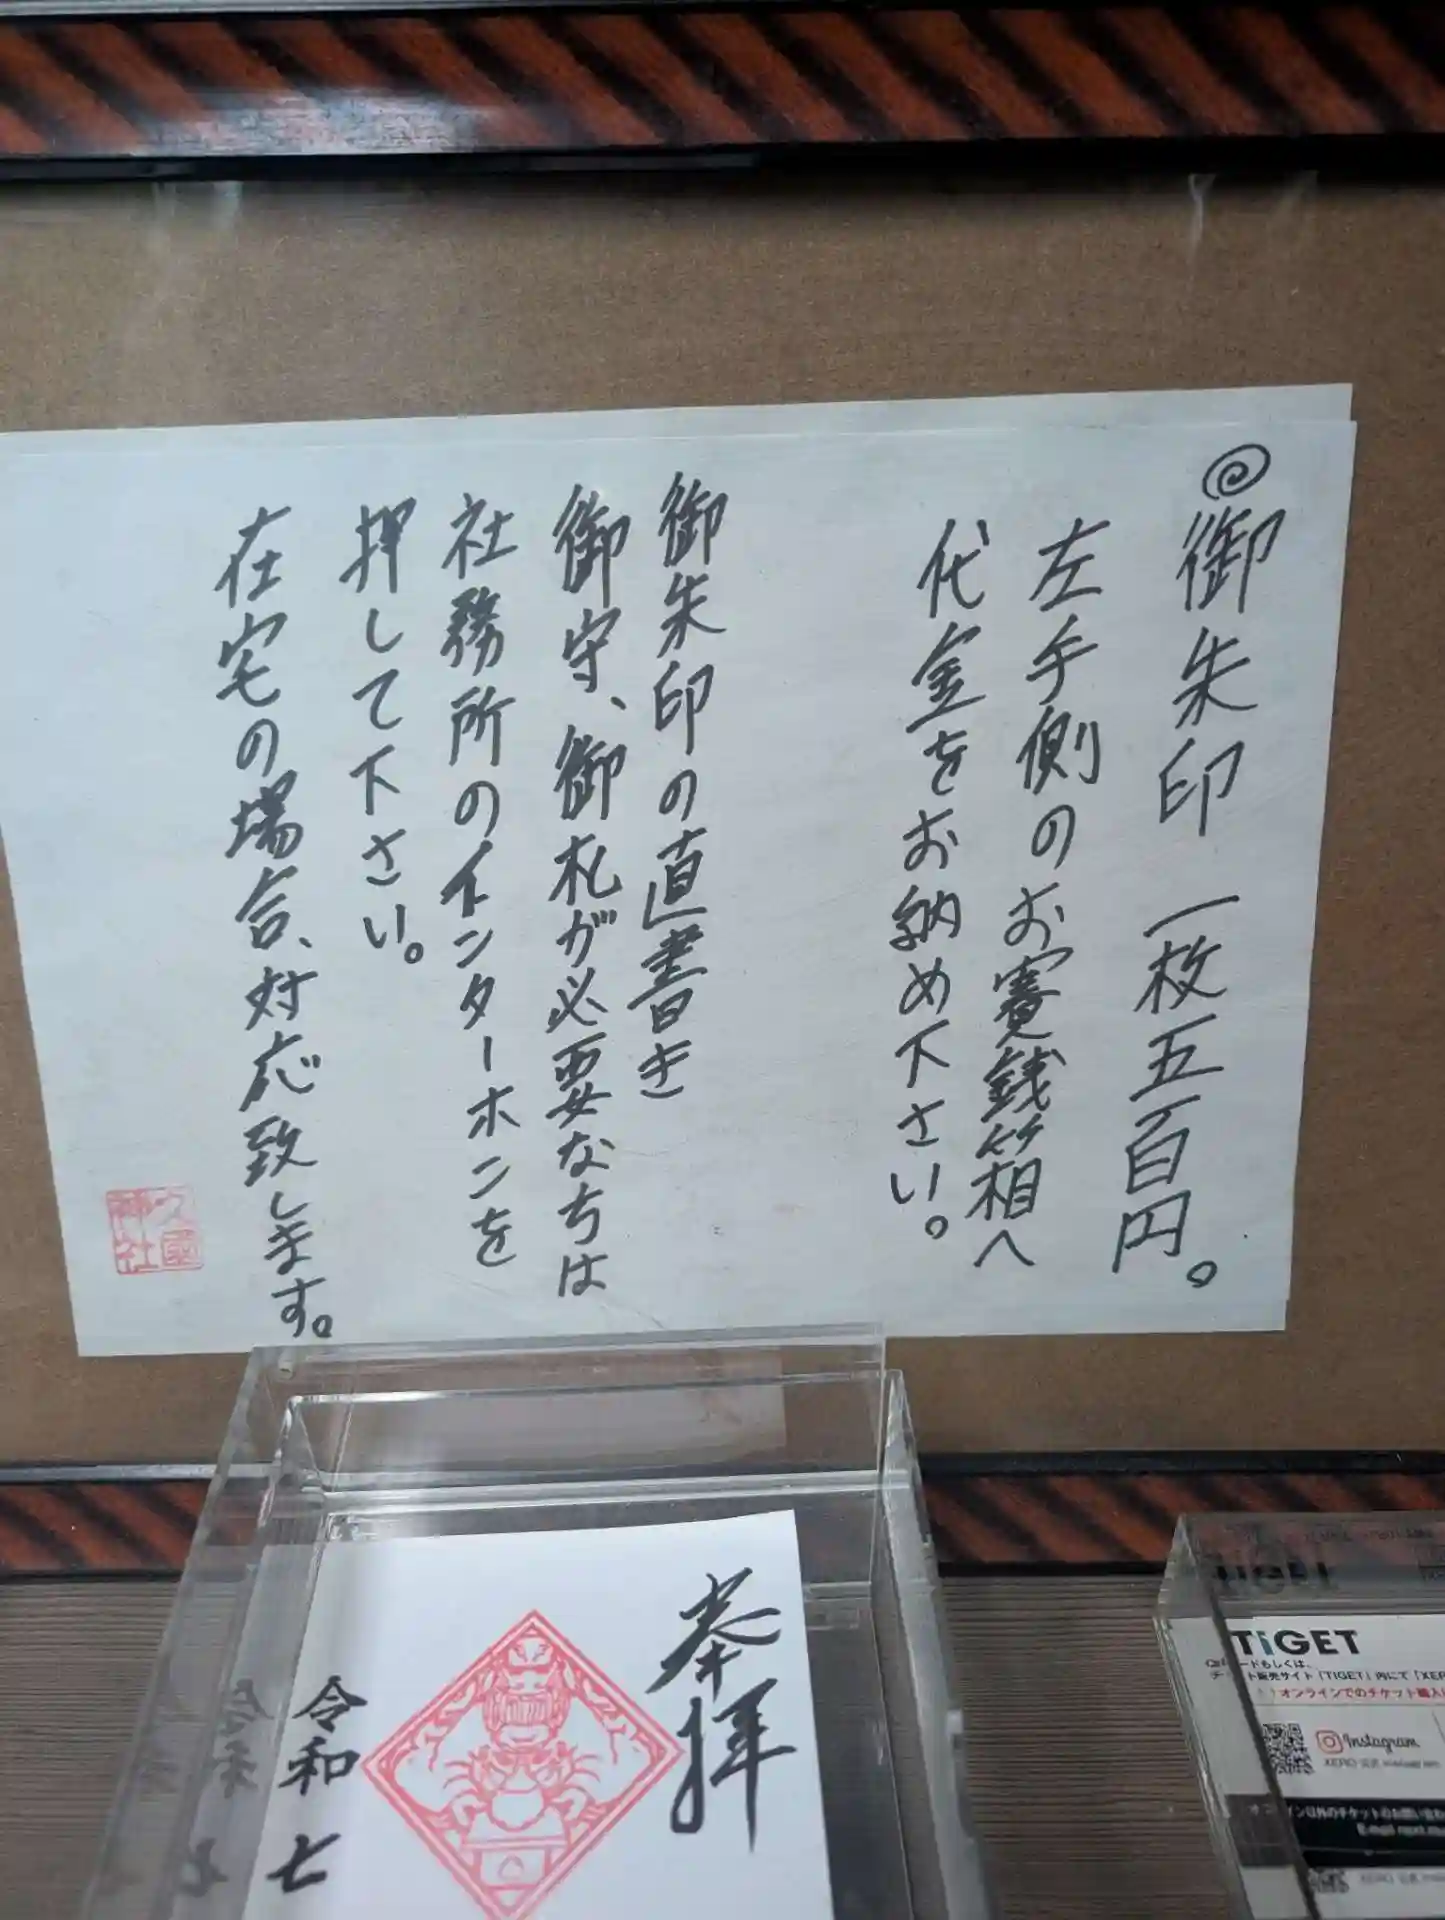 御朱印 一枚五百円。
左手側のお賽銭箱へ
代金をお納め下さい。
御朱印の直書き
御守、御札が必要なちは
社務所のインターホンを
押して下さい。
在宅の場合、対応致します。
久國
神社
奉拝
令和七
TiGET
TiGET
ードもしくは、
ト販売サイト「TIGET」内にて「XER
！オンラインでのチケット購入
Instagram
オンライン以外のチケットのお問い合わ
E-mail